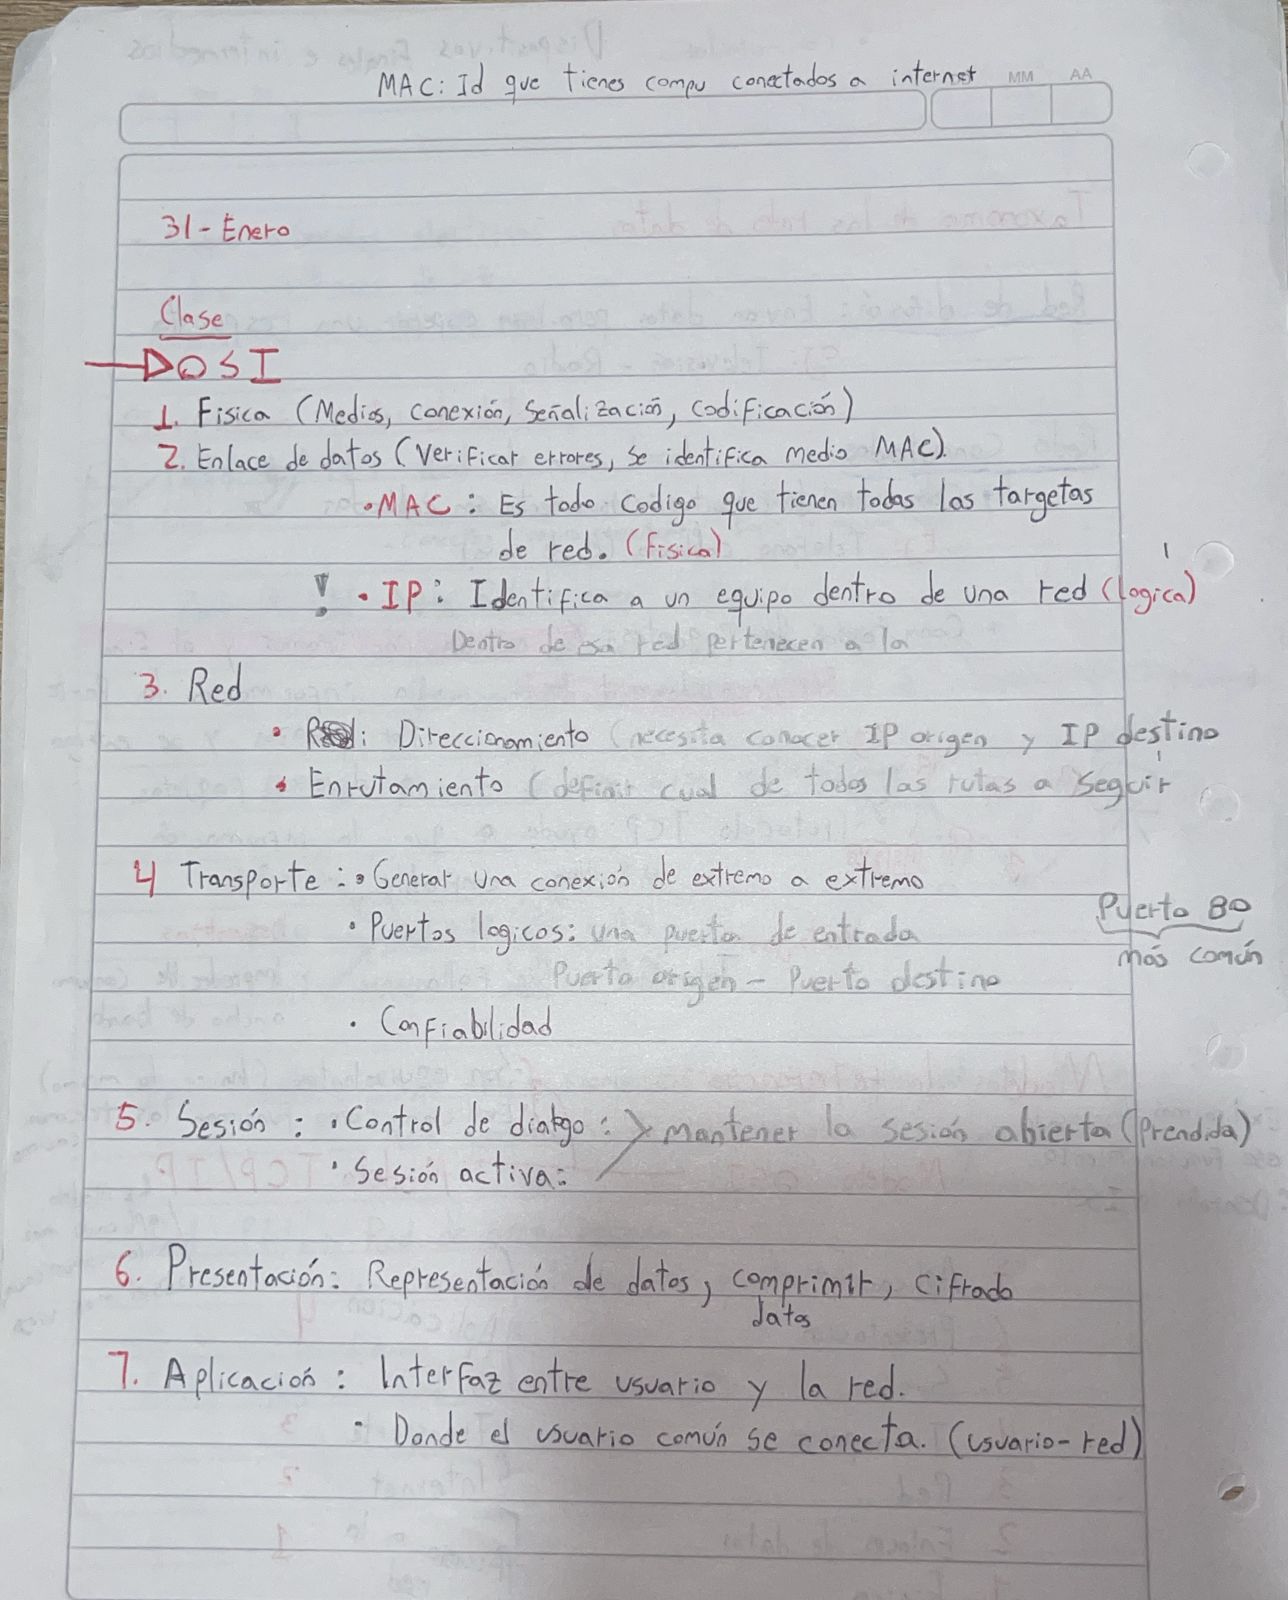 MAC: Id que tienes compu conectados a internet
MM AA
31 - Enero
Clase
OSI
1. Fisica (Medios, conexión, señalización, codificación)
2. Enlace de datos (Verificar errores, se identifica medio MAC).
• MAC: Es todo codigo que tienen todas las targetas
de red. (Fisica)
! • IP: Identifica a un equipo dentro de una red (logica)
Dentro de esa red pertenecen a la
3. Red
• : Direccionamiento (necesita conocer IP origen y IP destino
• Enrutamiento (definir cual de todos las rutas a seguir
4 Transporte: • Generar una conexión de extremo a extremo
• Puertos logicos: una puerta de entrada
Puerto 80
más común
Puerto origen - Puerto destino
• Confiabilidad
5. Sesión: • Control de dialogo: > mantener la sesión abierta (Prendida)
• Sesión activa:
6. Presentación: Representación de datos, comprimir, cifrado
datos
7. Aplicación: Interfaz entre usuario y la red.
• Donde el usuario común se conecta. (usuario-red)